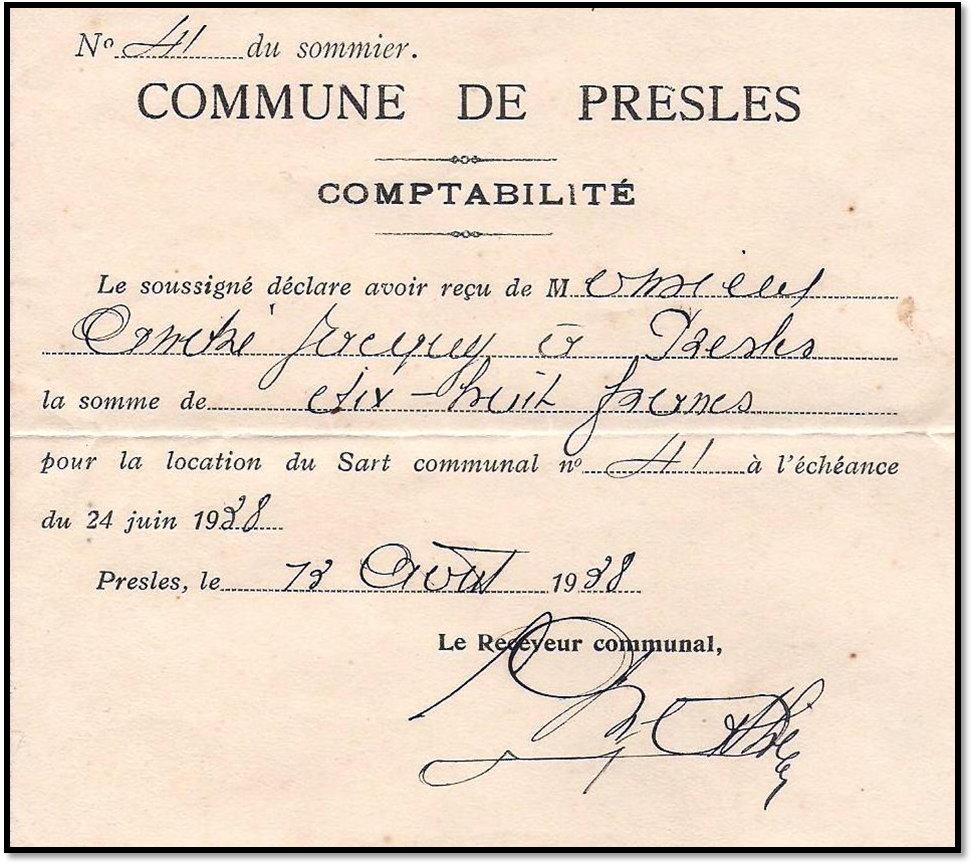 N° 41 du sommier.
COMMUNE DE PRESLES
COMPTABILITÉ
Le soussigné déclare avoir reçu de Monsieur
André Jacquy à Presles
la somme de dix-huit francs
pour la location du Sart communal n° 41 à l'échéance
du 24 juin 1938
Presles, le 13 Août 1938
Le Receveur communal,